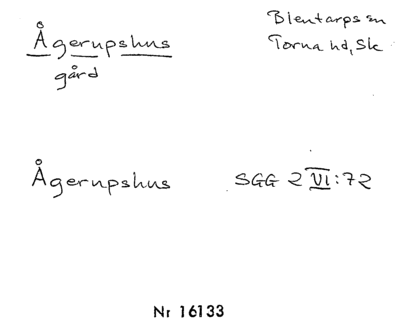 Ågerupshus
gård
Blentarps sn
Torna hd, Sk
Ågerupshus
SGG 2 VI:72
Nr 16133